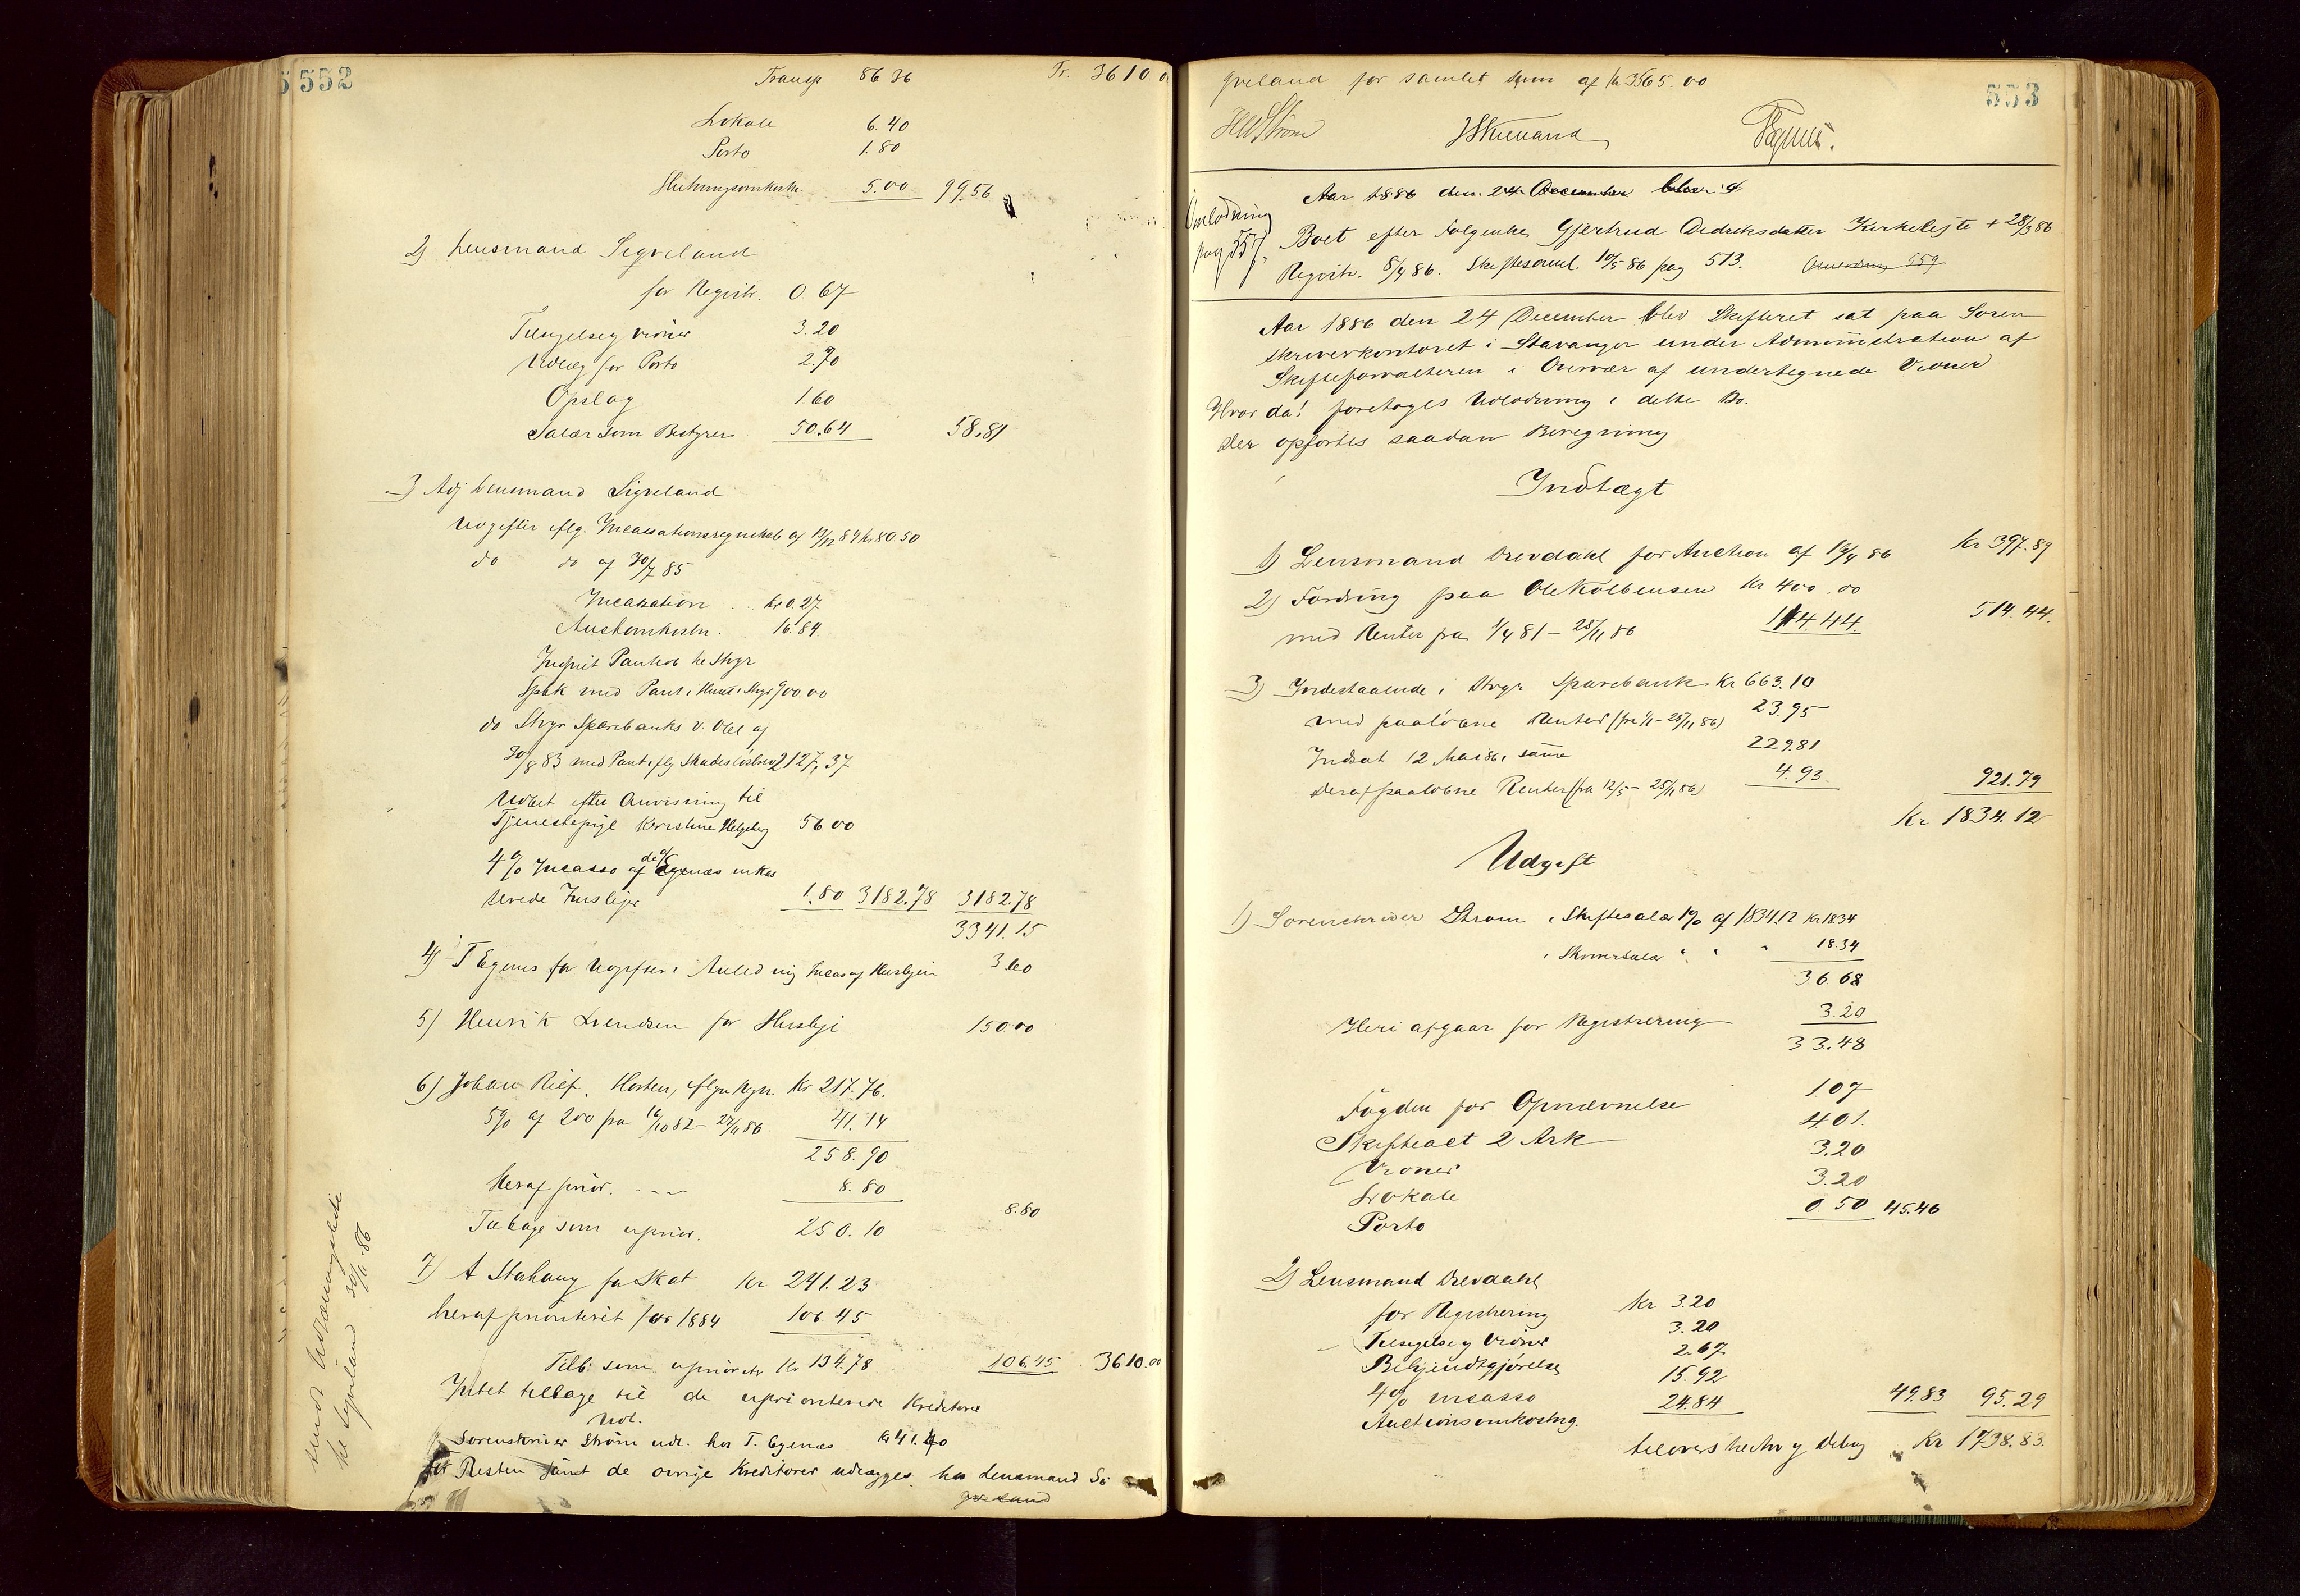 552
Transp 86 36 Tr. 3610 0
Lokale 6.40
Porto 1.80
5.00 99.56
2) Lensmand Sigveland
for Registr. 0.67
Tilsigelse og Vidner 3.20
Udlæg for Porto 2.70
Opslag 1.60
Salær som Bestyrer 50.64 58.81
3) Adj Lensmand Sigveland
Udgifter iflg. Incassationsregnskab af 13/12 84 kr 80 50
do do af 30/7 85
Incassation .. kr 0.27
Auctionkostn. 16.84
Indfriet Pantob he Stvgr
Spbk med Pant i Huset i Stvgr 900.00
do Stvgr Sparebanks v. Obl af
30/8 83 med Pant iflg Skadesløsbrev 2127,37
Udbet efter Anvisning til
Tjenestepige Kirstine Helgeberg 56 00
4% Incasso af de af Egenæs inkas
serede Husleje 1.80 3182.78 3182.78
3341.15
4) T Egenes for Udgifter i Anledning Incas af Huslejen 3.60
5) Henrik Svendsen for Husleje 150 00
6) Johan Rief. Horten, iflg Regn. Kr 217.76.
5% af 200 fra 16/10 82 - 27/11 86 41.14
258.90
Heraf prior. 8.80 8.80
Tilbage som uprior. 250.10
7) A Stahaug for Skat Kr 241.23
heraf prioriteret for 1884 106.45
Tilb: som upriorit Kr 134.78 106.45 3610.00
Intet tilbage til de uprioriterede Kreditorer
Udl.
Sorenskriver Strøm udl. hos T. Egenæs Kr 41.40
Resten samt de øvrige Kreditorer udlægges hos Lensmand Si
gveland
sendt Udlodningsliste
he Sigveland 30/11 86
553
gveland for samlet Sum af Kr 3565.00
HWStrøm
TEgenes.
Aar 1886 den 24 December blev d
Udlodning
pag 557.
Boet efter Følgenke Gjertrud Dedriksdatter Kirkeleite + 28/3 86
Registr. 8/4 86. Skiftesaml. 10/5 86 pag 513. Omlodning 559
Aar 1886 den 24 December blev Skifteret sat paa Soren
skriverkontoret i Stavanger under Administration af
Skifteforvalteren i Overvær af undertegnede Vidner
Hvor da! foretoges Udlodning i dette Bo.
Der opførtes saadan Beregning
Indtægt
1) Lensmand Drevdahl for Auction af 19/4 86 Kr 397.89
2) Fordring paa Ole Kolbensen Kr 400.00
med Renter fra 1/4 81 - 28/11 86 114.44. 514.44.
3) Indestaaende i Stvgr Sparebank Kr 663.10
med paaløbne Renter (fra 1/1 - 28/11 86) 23.95
Indsat 12 Mai 86 i samme 229.81
deraf paaløbne Renter (fra 12/5 - 28/11 86) 4.93 921.79
Kr 1834.12
Udgift
1) Sorenskriver Strøm i Skiftesalær 1% af 1834.12 Kr 18 34
i Skriversalær " " " 18.34
36.68
Heri afgaar for Registrering 3.20
33.48
Fogden for Opnævnelse 1.07
Skifteact 2 Ark 4.01.
Vidner 3.20
Lokale 3.20
Porto 0 50 45.46
2) Lensmand Drevdahl
for Registrering Kr 3.20
Tilsigelse og Vidner 3.20
Bekjendtgjørelse 2.67
4% incasso 15.92
Auctionsomkostng. 24.84 49.83 95.29
tilovers he Arv og Deling Kr 1738.83.